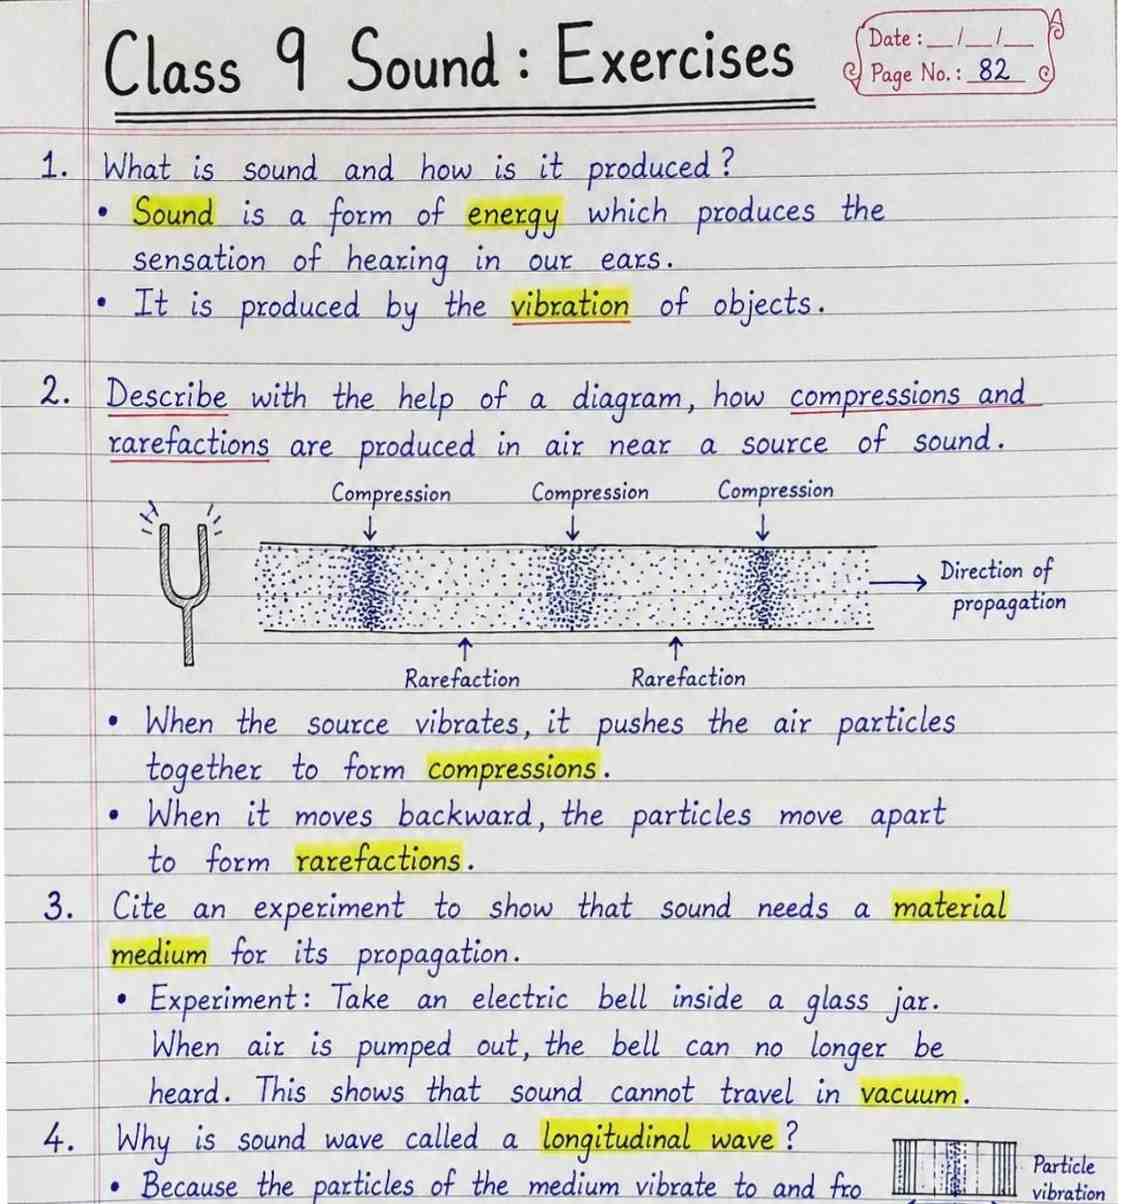 Class 9 Sound : Exercises
Date : __/__/__
Page No. : 82
1. What is sound and how is it produced?
• Sound is a form of energy which produces the
sensation of hearing in our ears.
• It is produced by the vibration of objects.
2. Describe with the help of a diagram, how compressions and
rarefactions are produced in air near a source of sound.
Compression Compression Compression
Direction of
propagation
Rarefaction Rarefaction
• When the source vibrates, it pushes the air particles
together to form compressions.
• When it moves backward, the particles move apart
to form rarefactions.
3. Cite an experiment to show that sound needs a material
medium for its propagation.
• Experiment: Take an electric bell inside a glass jar.
When air is pumped out, the bell can no longer be
heard. This shows that sound cannot travel in vacuum.
4. Why is sound wave called a longitudinal wave?
• Because the particles of the medium vibrate to and fro
Particle
vibration